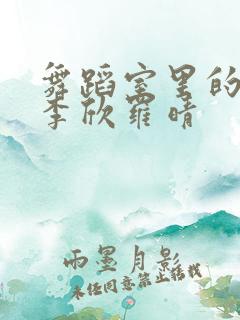 舞蹈室里的
李欣罗晴
雨墨月影
未经同意禁止搭载